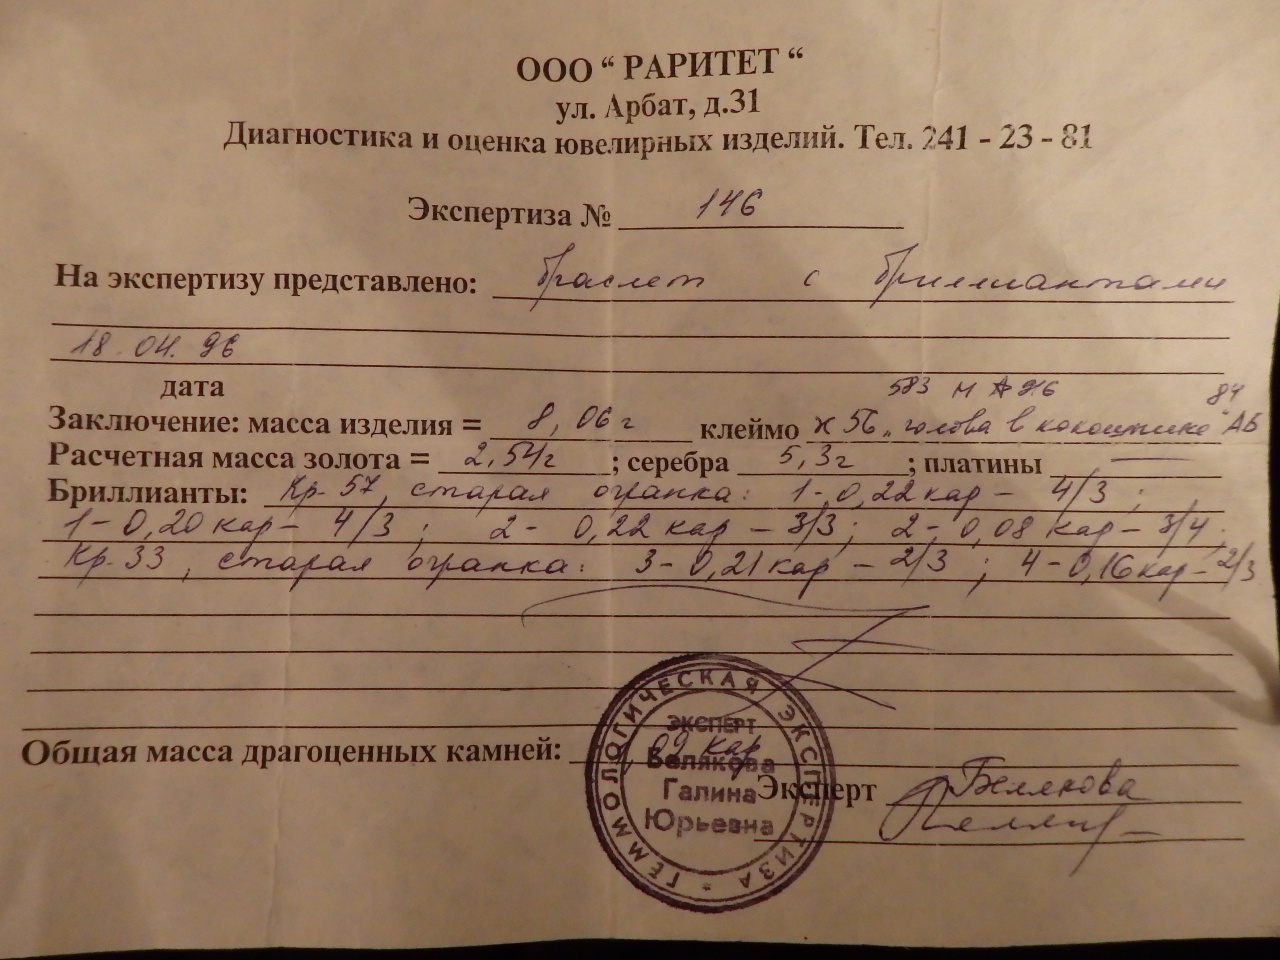 ООО “ РАРИТЕТ “
ул. Арбат, д.31
Диагностика и оценка ювелирных изделий. Тел. 241 - 23 - 81
Экспертиза № 146
На экспертизу представлено: браслет с бриллиантами
18.04.96
дата
583 84
Заключение: масса изделия = 8,06 г клеймо 56 „голова в кокошнике" АБ
Расчетная масса золота = 2,54г ; серебра 5,3г ; платины —
Бриллианты: Кр-57, старая огранка: 1-0,22 кар - 4/3 ;
1-0,20 кар - 4/3 ; 2- 0,22 кар - 3/3 ; 2-0,08 кар - 3/4 ;
Кр-33, старая огранка: 3-0,21 кар - 2/3 ; 4-0,16 кар - 2/3
Общая масса драгоценных камней: 1,09 кар
ГЕММОЛОГИЧЕСКАЯ ЭКСПЕРТИЗА
ЭКСПЕРТ
Белякова
Галина
Юрьевна
Эксперт Белякова